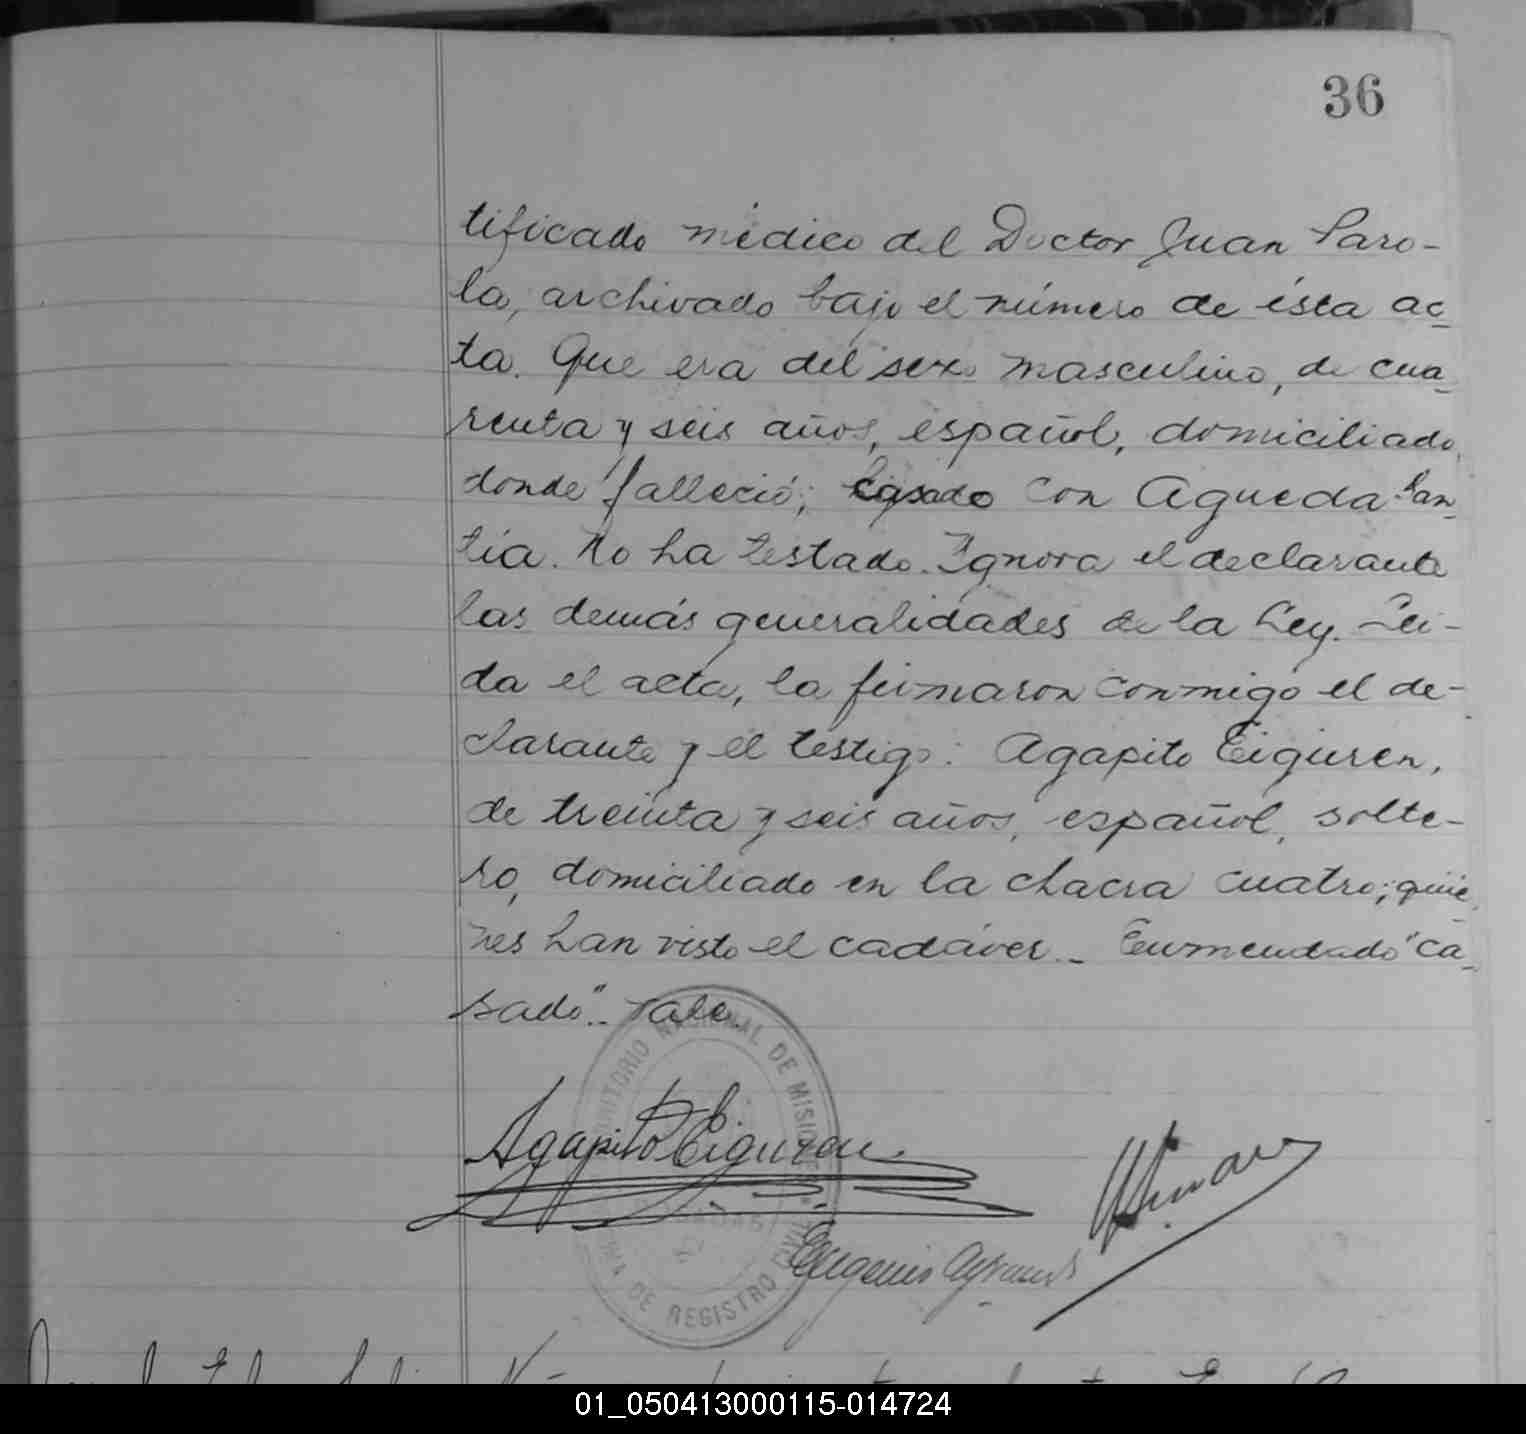 36
tificado médico del Doctor Juan Paro-
la, archivado bajo el número de ésta ac-
ta. Que era del sexo masculino, de cua-
renta y seis años, español, domiciliado
donde falleció; casado con Agueda San-
tía. No ha testado. Ignora el declarante
las demás generalidades de la Ley. Lei-
da el acta, la firmaron conmigo el de-
clarante y el testigo: Agapito Eiguren,
de treinta y seis años, español, solte-
ro, domiciliado en la chacra cuatro; quie-
nes han visto el cadáver._ Enmendado "ca-
sado"._ Vale.
TERRITORIO NACIONAL DE MISIONES
POSADAS
DE REGISTRO CIVIL
Agapito Eiguren
Eugenio
01_050413000115-014724